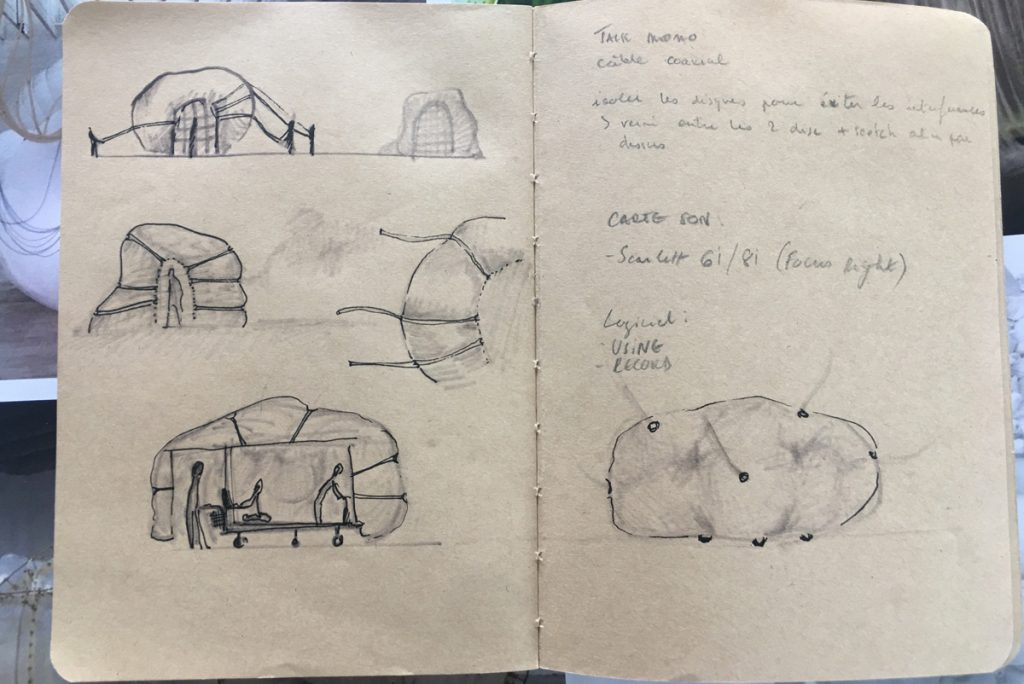 mono
câble coaxial
isoler les disques pour éviter les interférences
entre les 2 disc + scotch
dessus
CARTE SON:
- Scarlett 6i/8i (Focus Right)
Logiciel:
- USING
- RECORD